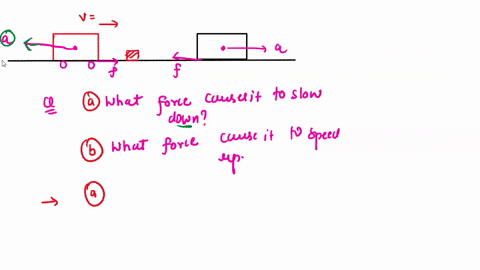 v = →
a
a
f
f
Q (a) What force cause it to slow
down?
(b) What force cause it to speed
up.
→ (a)